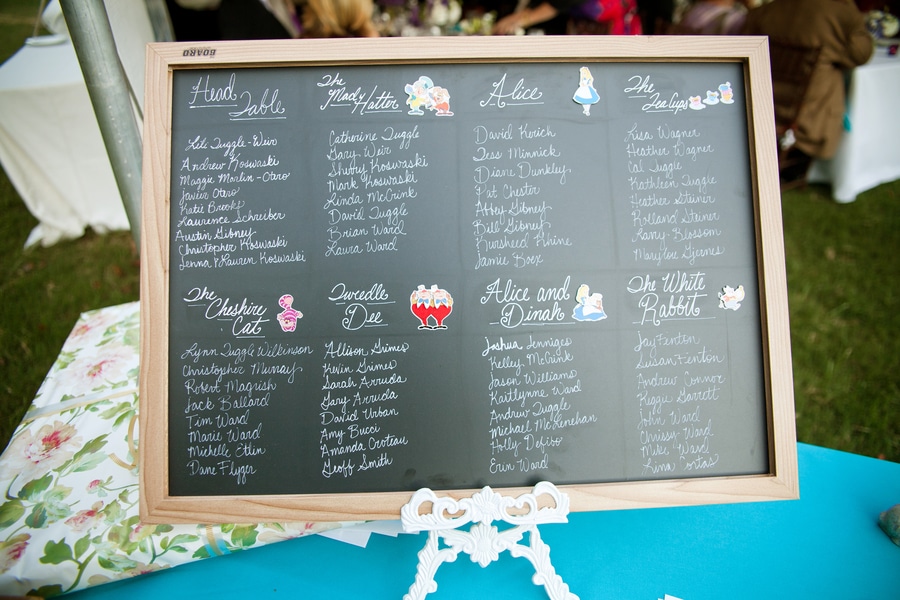 BOARD
Head
Table
Lili Tuggle-Weir
Andrew Koswaski
Maggie Marlin-Otero
Javier Otero
Katie Brooks
Laurence Schreiber
Austin Gibney
Christopher Koswaski
Jenna & Lauren Koswaski
The
Mad Hatter
Catherine Tuggle
Gary Weir
Sherry Koswaski
Mark Koswaski
Linda McCrink
David Tuggle
Brian Ward
Laura Ward
Alice
David Kerich
Tess Minnick
Diane Dunkley
Pat Chester
Abbey Gibney
Bill Gibney
Khine
Jamie
The
Tea Cups
Lisa Wagner
Heather Wagner
Cai Tuggle
Kathleen Tuggle
Heather Steiner
Rolland Steiner
Larry Blossom
Marylou Gjernes
The
Cheshire
Cat
Lynn Tuggle Wilkinson
Christopher Murray
Robert Magrish
Jack Ballard
Tim Ward
Marie Ward
Michelle Etlin
Dane Flyger
Tweedle
Dee
Allison Grimes
Kevin Grimes
Sarah Arruda
Gary Arruda
David Urban
Amy Bucci
Amanda Croteau
Geoff Smith
Alice and
Dinah
Joshua Jenniges
Kelley McCrink
Jason Williams
Kaitlynne Ward
Andrew Tuggle
Michael McKenehan
Holly Defiso
Erin Ward
The White
Rabbit
Jay Fenton
Susan Fenton
Andrew Connor
Reggie Garrett
John Ward
Chrissy Ward
Mike Ward